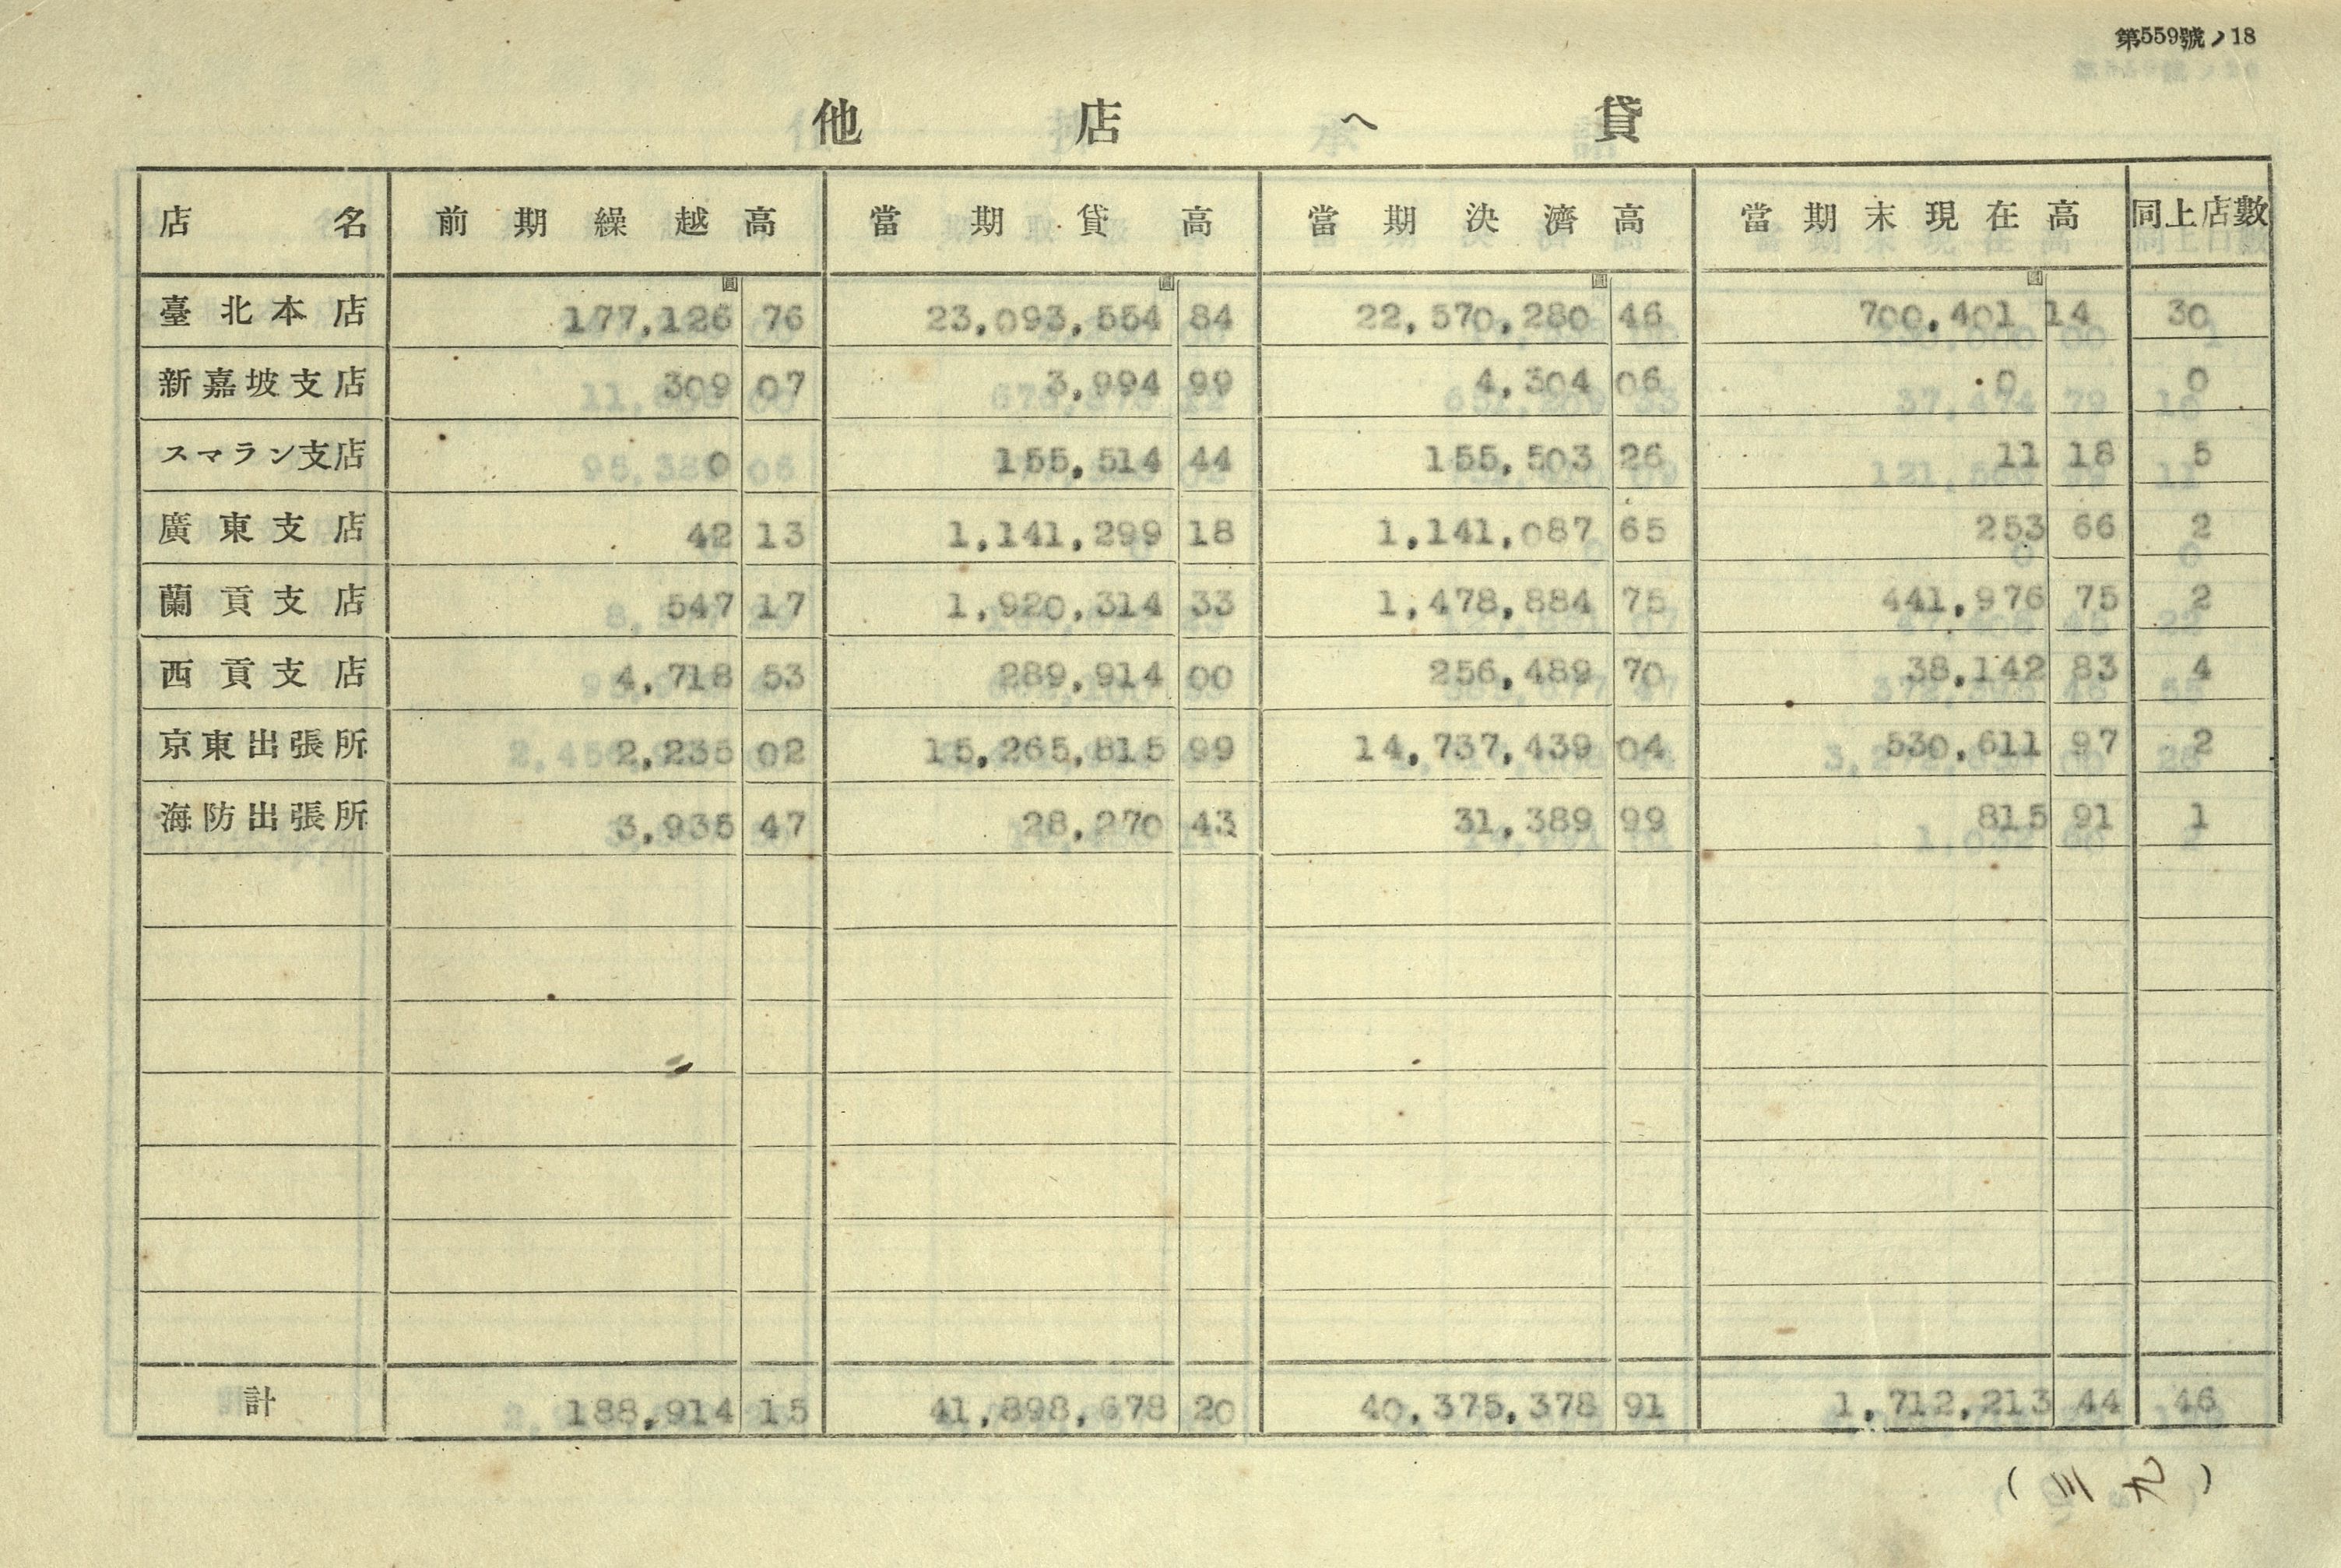 第559號ノ18
他店へ貸
店名 前期繰越高 當期貸高 當期決濟高 當期末現在高 同上店數
圓 圓 圓 圓
臺北本店 177,126 76 23,093,554 84 22,570,280 46 700,401 14 30
新嘉坡支店 309 07 3,994 99 4,304 06 0 0
スマラン支店 0 155,514 44 155,503 26 11 18 5
廣東支店 42 13 1,141,299 18 1,141,087 65 253 66 2
蘭貢支店 547 17 1,920,314 33 1,478,884 75 441,976 75 2
西貢支店 4,718 53 289,914 00 256,489 70 38,142 83 4
京東出張所 2,235 02 15,265,815 99 14,737,439 04 530,611 97 2
海防出張所 3,935 47 28,270 43 31,389 99 815 91 1
計 188,914 15 41,898,678 20 40,375,378 91 1,712,213 44 46